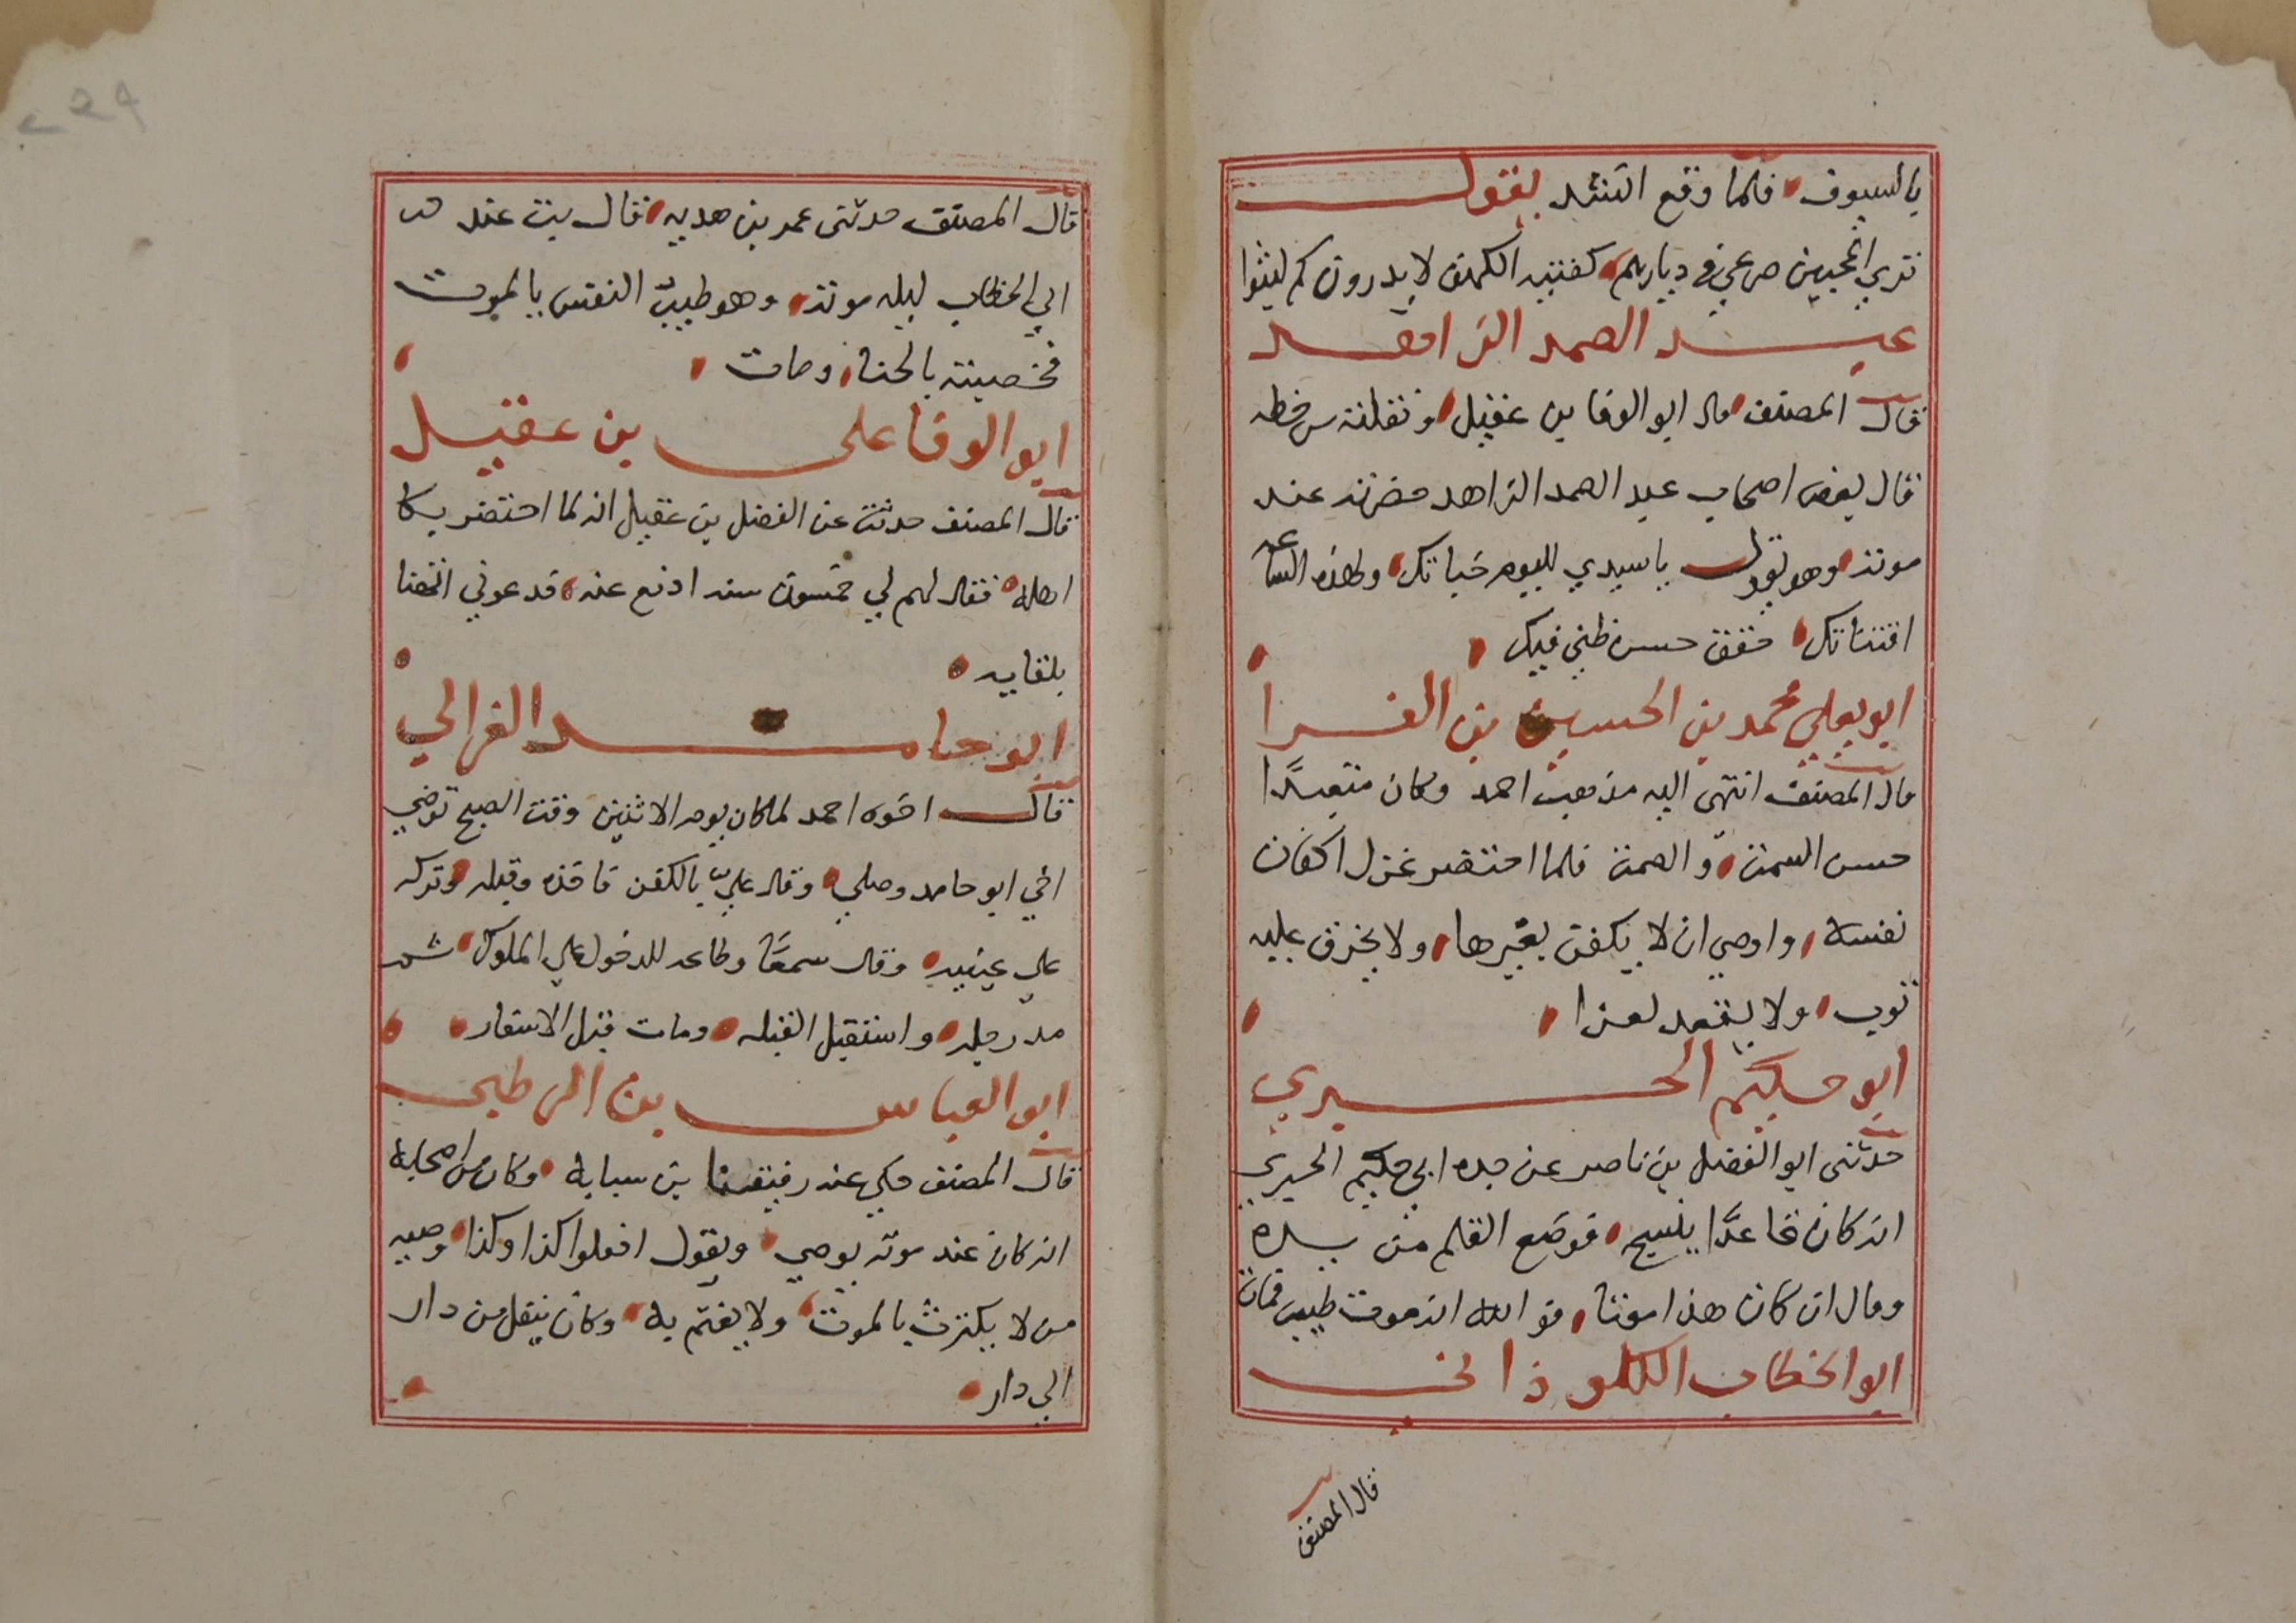 بالسيوف فلما وقع انشد يقول
تري المحبين صرعي في ديارهم كفتيه الكهف لا يدرون كم لبثوا
عبد الصمد الزاهد
قال المصنف قال ابو الوفا بن عقيل ونقلته من خطه
قال بعض اصحاب عبد الصمد الزاهد حضرته عند
موته وهو يقول يا سيدي لليوم خباتك ولهذه الساعه
اقتنتاتك حقق حسن ظني فيك
ابو يعلي محمد بن الحسين بن الفرا
قال المصنف انتهى اليه مذهب احمد وكان متعبدًا
حسن السمت والصمت فلما احتضر غزل اكفان
نفسه واوصي ان لا يكفن بغيرها ولا يخرق عليه
ثوب ولا يقعد لعزا
ابو حكيم الحيري
حدثنى ابو الفضل بن ناصر عن جده ابي حكيم الحيري
انه كان قاعدًا ينسخ فوضع القلم من يده
وقال ان كان هذا موتا فو الله انه موت طيب فمات
ابو الخطاب الكلوذاني
قال المصنف
٢٤٩
قال المصنف حدثنى عمر بن هديه قال بت عند
ابي الخطاب ليله موته وهو طيب النفس بالموت
فخصبته بالحنا ومات
ابو الوفا على بن عقيل
قال المصنف حدثت عن الفضل بن عقيل انه لما احتضر بكا
اهله فقال لهم لي خمسون سنه ادفع عنه فدعوني اتهنا
بلقايه
ابو حامد الغزالي
قال اخوه احمد لما كان يوم الاثنين وقت الصبح توضي
اخي ابو حامد وصلي وقال علي بالكفن فاخذه وقبله وتركه
علي عينيه وقال سمعًا وطاعه للدخول علي الملوك ثم
مد رجله واستقبل القبله ومات قبل الاسفار
ابو العباس بن الرطبى
قال المصنف حكي عنه رفيقنا بن سبايه وكان من اصحابه
انه كان عند موته يوصي ويقول افعلوا كذا وكذا وصيه
من لا يكترث بالموت ولا يغتم به وكان ينقل من دار
الي دار